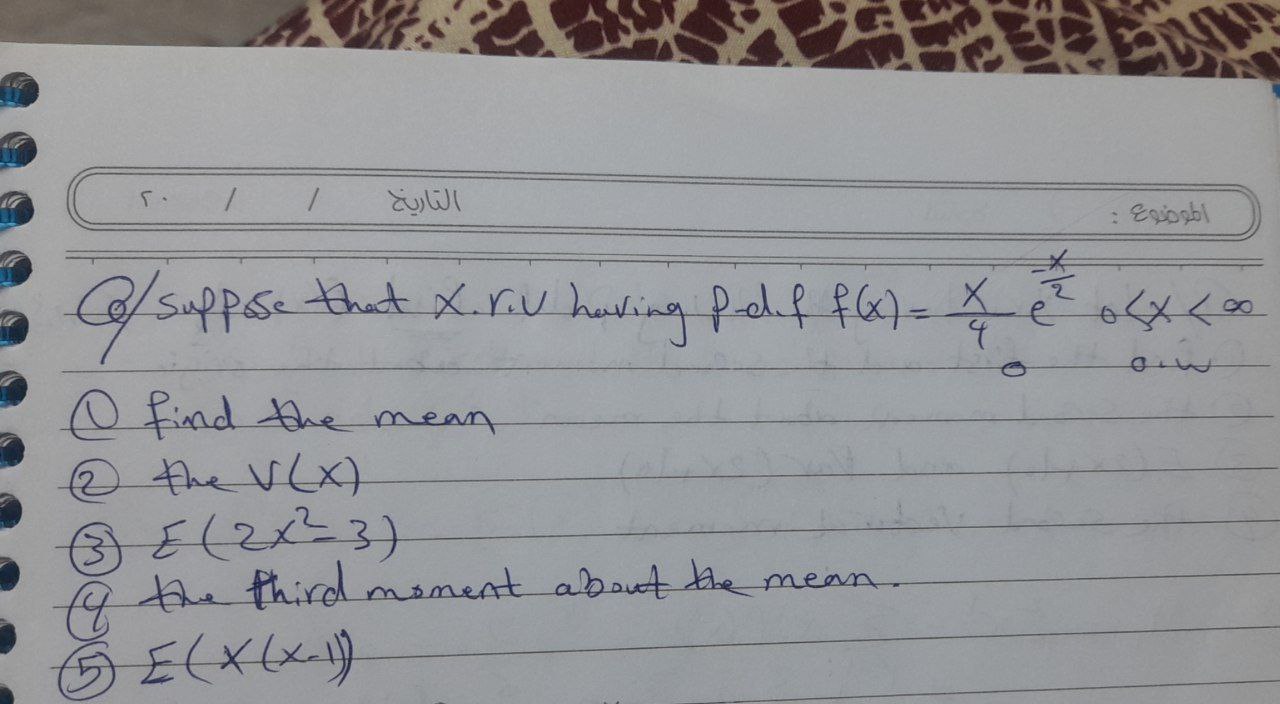 الموضوع : التاريخ / / ٢٠
Q/ suppose that X.r.v having p.d.f f(x) = x/4 e^(-x/2) 0<x<∞
0 o.w
① find the mean
② the V(X)
③ E(2x²-3)
④ the third moment about the mean.
⑤ E(X(x-1))